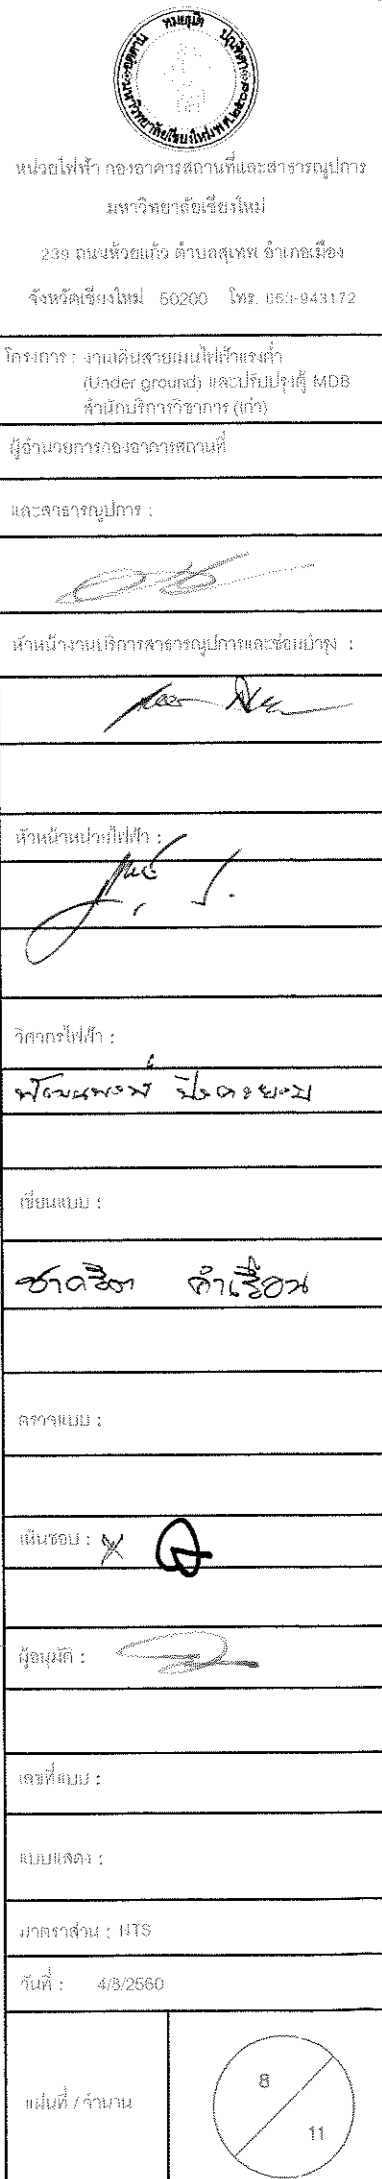 หน่วยไฟฟ้า กองอาคารสถานที่และสาธารณูปการ
มหาวิทยาลัยเชียงใหม่
239 ถนนห้วยแก้ว ตำบลสุเทพ อำเภอเมือง
จังหวัดเชียงใหม่ 50200 โทร. 053-943172
โครงการ : งานเดินสายเมนไฟฟ้าแรงต่ำ
(Under ground) และปรับปรุงตู้ MDB
สำนักบริการวิชาการ (เก่า)
ผู้อำนวยการกองอาคารสถานที่
และสาธารณูปการ :
หัวหน้างานบริการสาธารณูปการและซ่อมบำรุง :
หัวหน้าหน่วยไฟฟ้า :
วิศวกรไฟฟ้า :
เขียนแบบ :
ตรวจแบบ :
เห็นชอบ :
ผู้อนุมัติ :
เลขที่แบบ :
แบบแสดง :
มาตราส่วน : NTS
วันที่ : 4/8/2560
แผ่นที่ / จำนวน
8
11